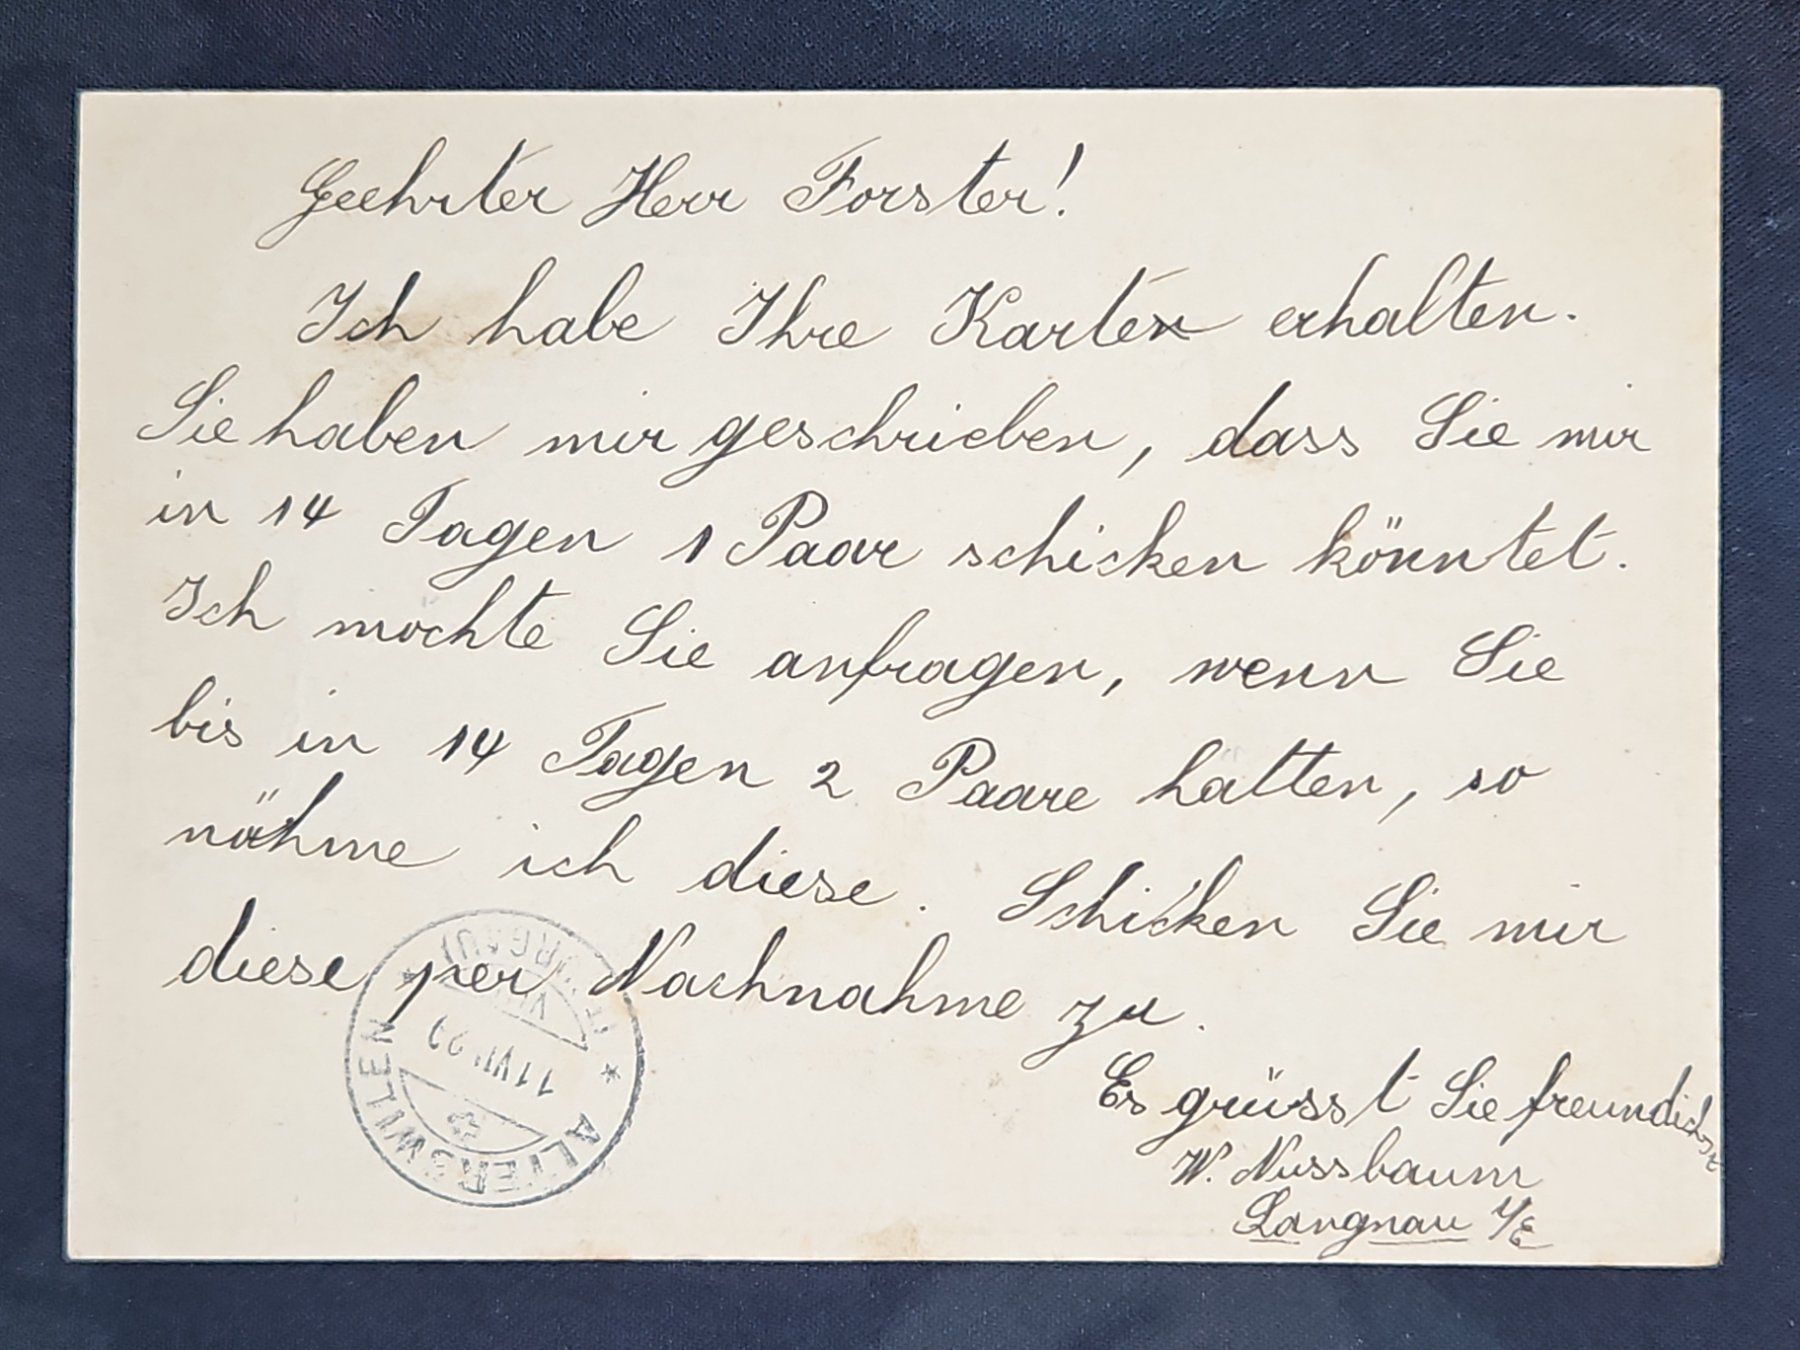 Geehrter Herr Forster!
Ich habe Ihre Karten erhalten.
Sie haben mir geschrieben, dass Sie mir
in 14 Tagen 1 Paar schicken könntet.
Ich mochte Sie anfragen, wenn Sie
bis in 14 Tagen 2 Paare hatten, so
nähme ich diese. Schicken Sie mir
diese per Nachnahme zu.
Es grüsst Sie freundlichst
W. Nussbaum
Langnau i/E
ALTERSWILEN
11 VII